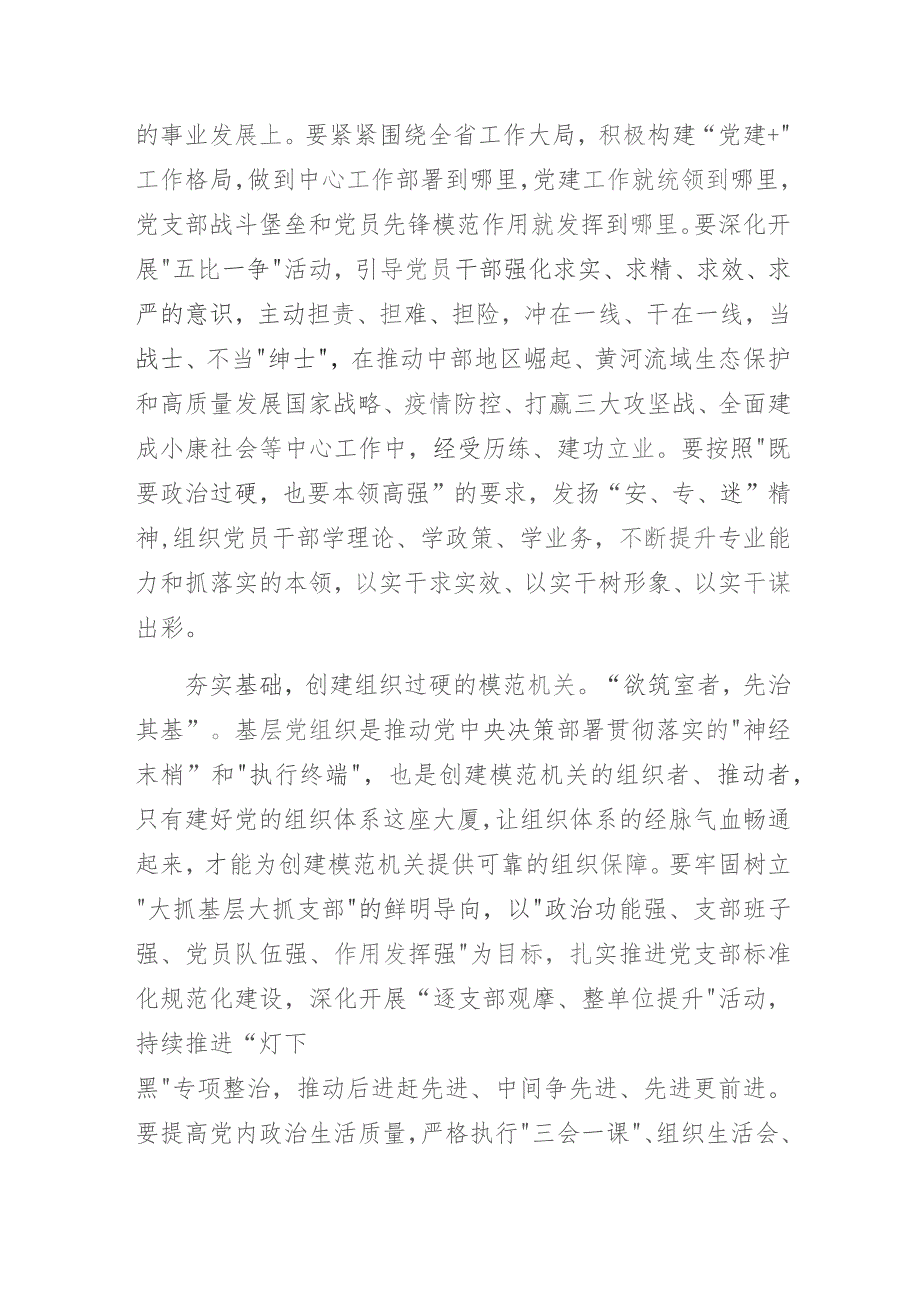 的事业发展上。要紧紧围绕全省工作大局，积极构建“党建+"
工作格局,做到中心工作部署到哪里,党建工作就统领到哪里,
党支部战斗堡垒和党员先锋模范作用就发挥到哪里。要深化开
展"五比一争"活动，引导党员干部强化求实、求精、求效、求
严的意识，主动担责、担难、担险，冲在一线、干在一线，当
战士、不当"绅士"，在推动中部地区崛起、黄河流域生态保护
和高质量发展国家战略、疫情防控、打赢三大攻坚战、全面建
成小康社会等中心工作中，经受历练、建功立业。要按照"既
要政治过硬，也要本领高强”的要求，发扬“安、专、迷”精
神,组织党员干部学理论、学政策、学业务，不断提升专业能
力和抓落实的本领，以实干求实效、以实干树形象、以实干谋
出彩。
夯实基础，创建组织过硬的模范机关。“欲筑室者，先治
其基”。基层党组织是推动党中央决策部署贯彻落实的"神经
末梢”和"执行终端"，也是创建模范机关的组织者、推动者,
只有建好党的组织体系这座大厦,让组织体系的经脉气血畅通
起来，才能为创建模范机关提供可靠的组织保障。要牢固树立
"大抓基层大抓支部"的鲜明导向，以"政治功能强、支部班子
强、党员队伍强、作用发挥强"为目标，扎实推进党支部标准
化规范化建设，深化开展“逐支部观摩、整单位提升"活动，
持续推进“灯下
黑"专项整治，推动后进赶先进、中间争先进、先进更前进。
要提高党内政治生活质量,严格执行"三会一课"、组织生活会、